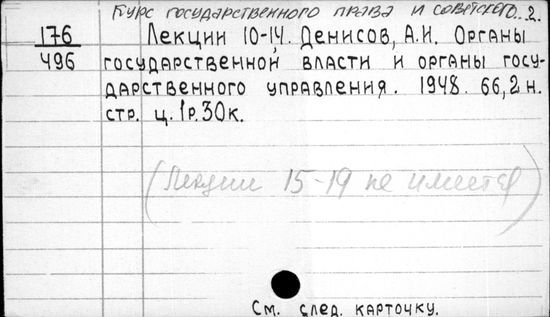 Курс государственного права и советского..2.
176
496
Лекции 10-14. Денисов, А.И. Органы
государственной власти и органы госу-
дарственного управления. 1948. 66,2 н.
стр. ц. 1р.30к.
(Лекции 15-19 не имеется)
См. след. карточку.